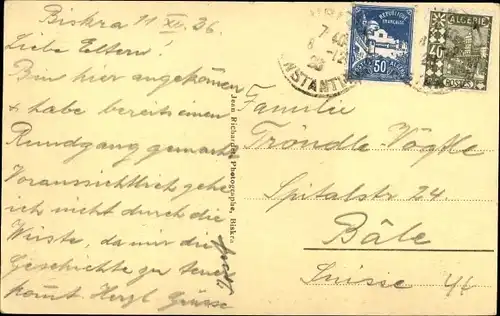 Biskra 11 XII. 36.
Liebe Eltern!
Bin hier angekommen
& habe bereits einen
Rundgang gemacht
Voraussichtlich gehe
ich nicht durch die
Wüste, da mir die
Geschichte zu teuer
kommt. Herzl Grüsse
Jean Richarde, Photographe, Biskra
REPUBLIQUE
FRANÇAISE
50c
ALGERIE
POSTES
Familie
Tröndle-Vögtle
Spitalstr 24
Bâle
Suisse